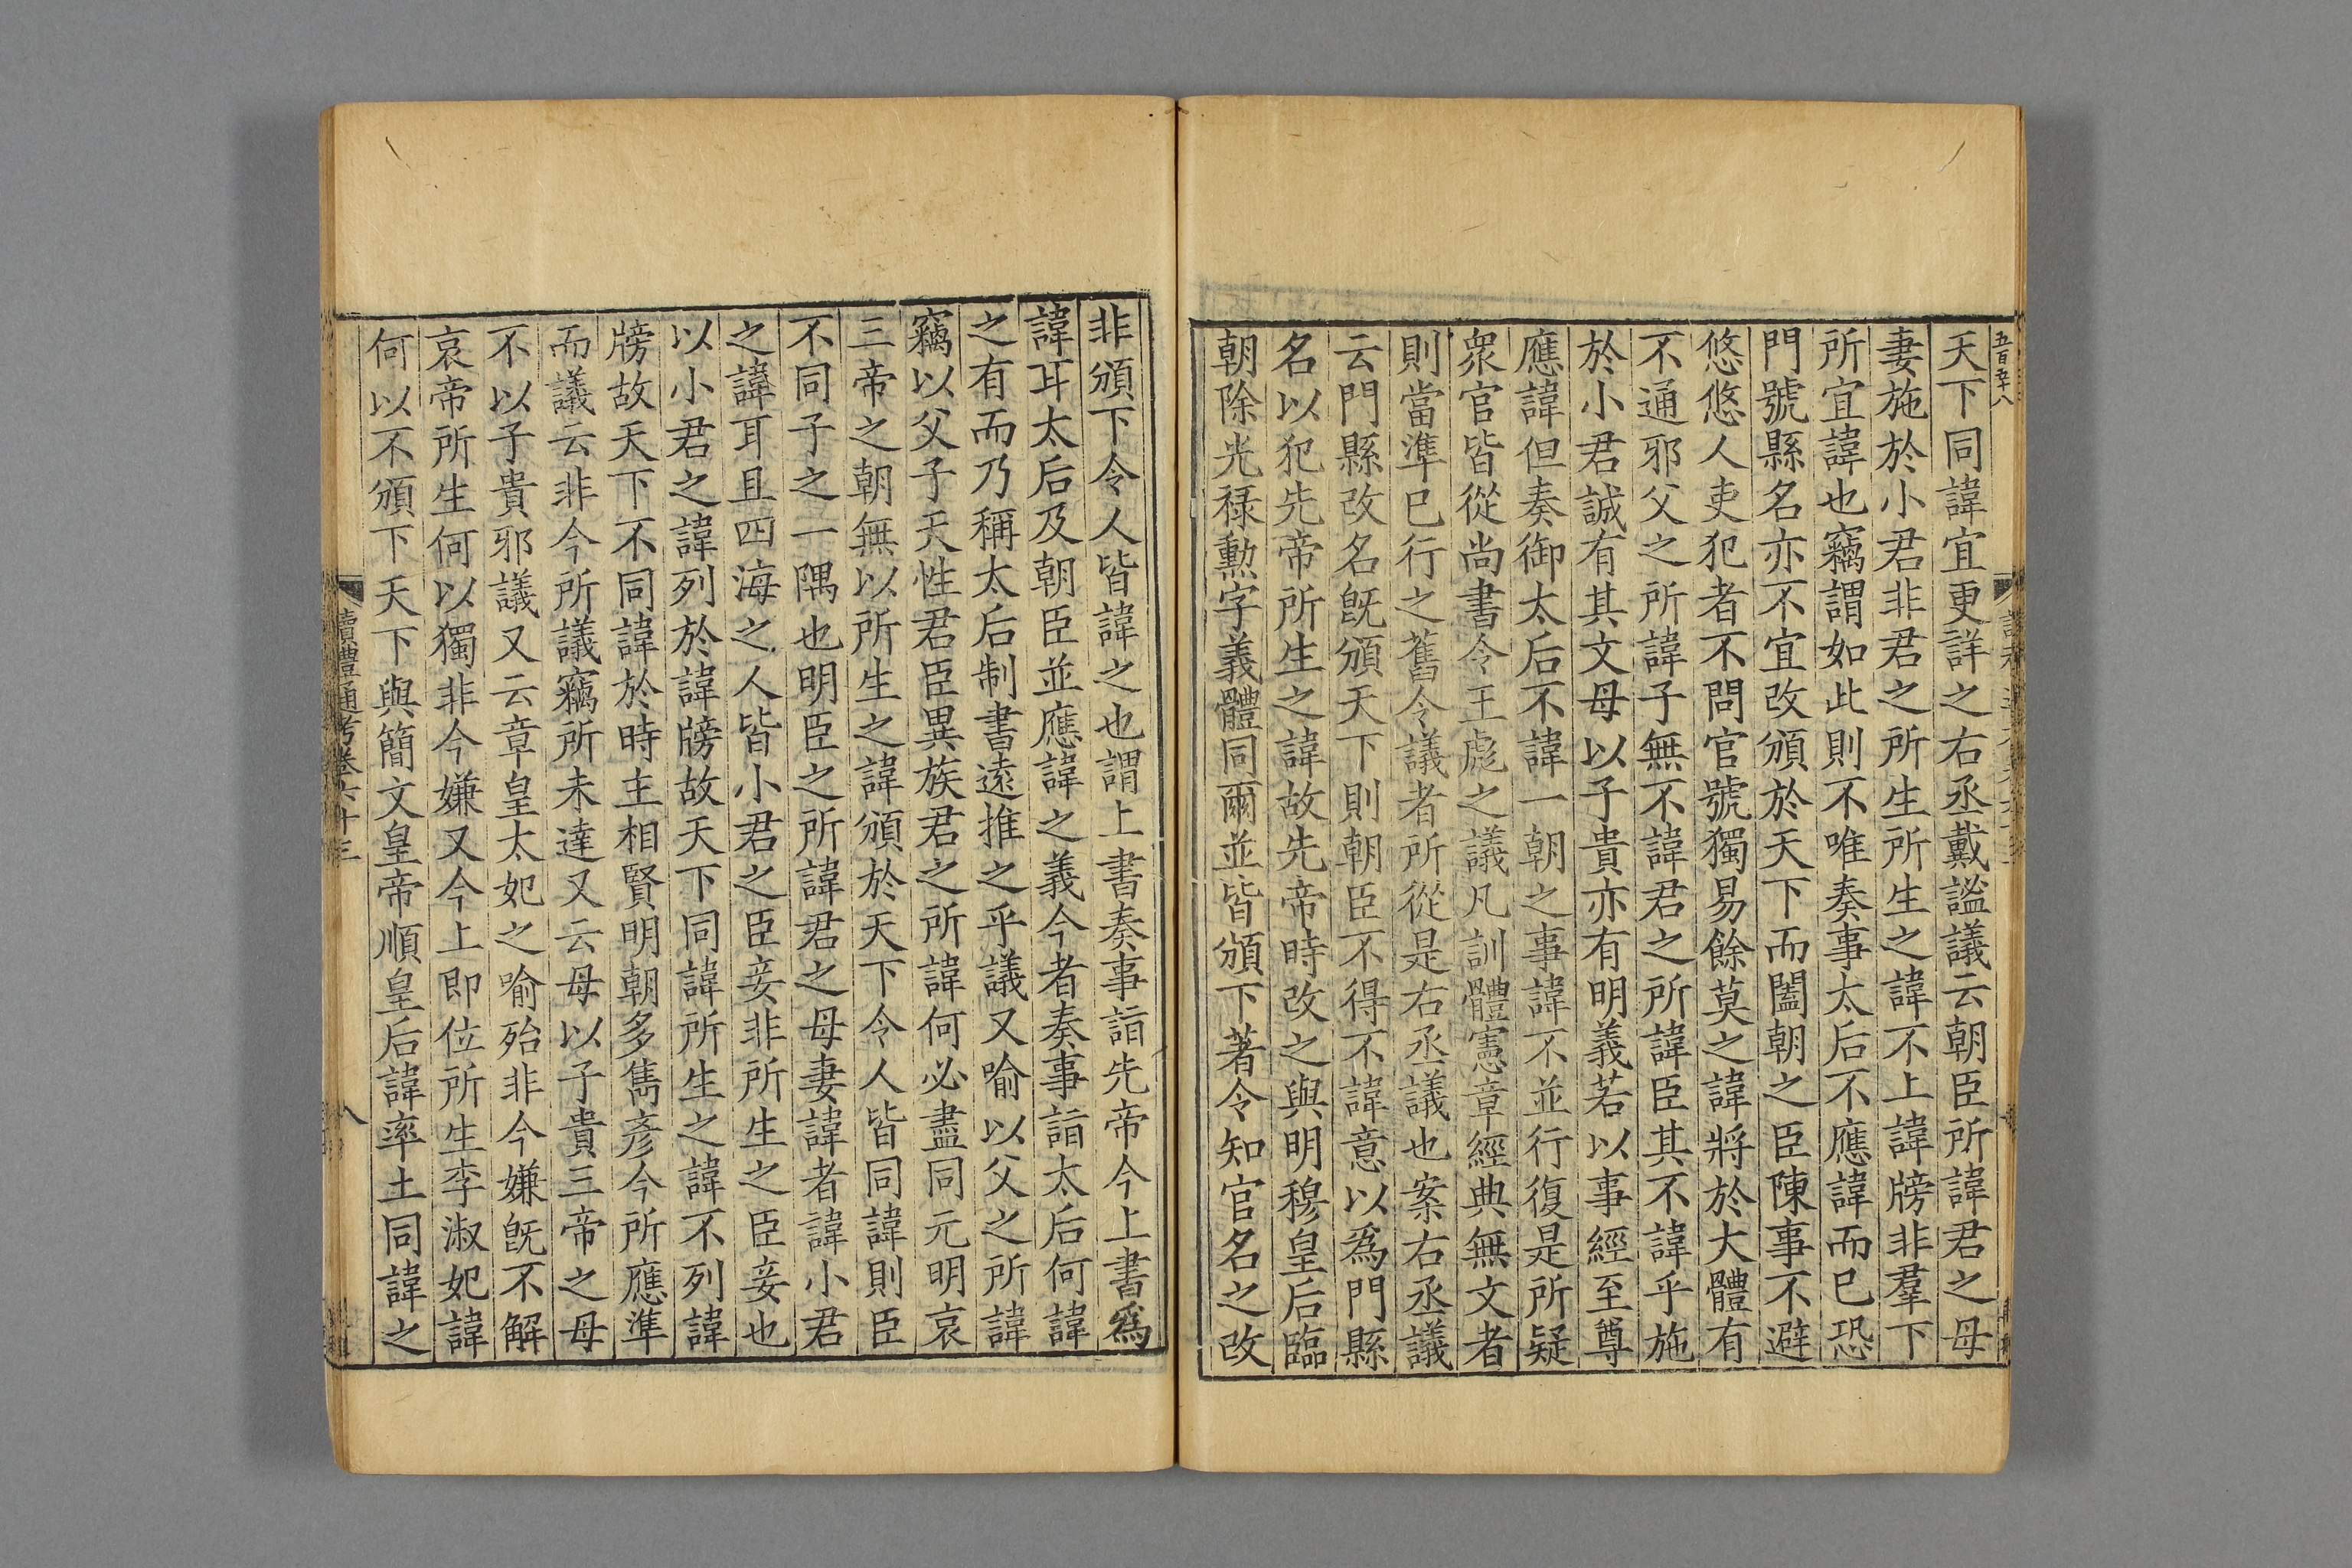 五百五十八
天下同諱宜更詳之右丞戴謐議云朝臣所諱君之母
妻施於小君非君之所生所生之諱不上諱牓非羣下
所宜諱也竊謂如此則不唯奏事太后不應諱而已恐
門號縣名亦不宜改頒於天下而闔朝之臣陳事不避
悠悠人吏犯者不問官號獨易餘莫之諱將於大體有
不通邪父之所諱子無不諱君之所諱臣其不諱乎施
於小君誠有其文母以子貴亦有明義若以事經至尊
應諱但奏御太后不諱一朝之事諱不並行復是所疑
衆官皆從尚書令王彪之議凡訓體憲章經典無文者
則當準已行之舊今議者所從是右丞議也案右丞議
云門縣改名旣頒天下則朝臣不得不諱意以爲門縣
名以犯先帝所生之諱故先帝時改之與明穆皇后臨
朝除光禄勳字義體同爾並皆頒下著令知官名之改
非頒下令人皆諱之也謂上書奏事詣先帝今上書爲
諱耳太后及朝臣並應諱之義今者奏事詣太后何諱
之有而乃稱太后制書遠推之乎議又喻以父之所諱
竊以父子天性君臣異族君之所諱何必盡同元明哀
三帝之朝無以所生之諱頒於天下令人皆同諱則臣
不同子之一隅也明臣之所諱君之母妻諱者諱小君
之諱耳且四海之人皆小君之臣妾非所生之臣妾也
以小君之諱列於諱牓故天下同諱所生之諱不列諱
牓故天下不同諱於時主相賢明朝多雋彥今所應準
而議云非今所議竊所未達又云母以子貴三帝之母
不以子貴邪議又云章皇太妃之喻殆非今嫌旣不解
哀帝所生何以獨非今嫌又今上即位所生李淑妃諱
何以不頒下天下與簡文皇帝順皇后諱率土同諱之
讀禮通考卷六十三
八